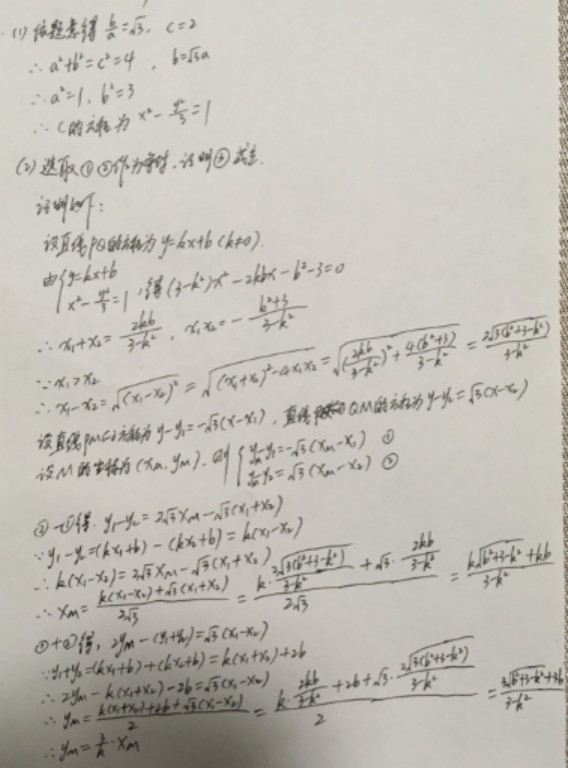 (1) 依题意得 b/a=√3, c=2
∴a²+b²=c²=4, b=√3a
∴a²=1, b²=3
∴C的方程为 x²-y²/3=1
(2) 选取①②作为条件,证明③成立.
证明如下:
设直线PQ的方程为y=kx+b(k≠0).
由{y=kx+b
x²-y²/3=1, 得(3-k²)x²-2kbx-b²-3=0
∴x₁+x₂=2kb/(3-k²), x₁x₂=-(b²+3)/(3-k²)
∵x₁>x₂
∴x₁-x₂=√(x₁-x₂)²=√((x₁+x₂)²-4x₁x₂)=√((2kb/(3-k²))²+4(b²+3)/(3-k²))=2√3(b²+3-k²)/(3-k²)
设直线PM的方程为y-y₁=-√3(x-x₁), 直线QM的方程为y-y₂=√3(x-x₂)
设M的坐标为(xM, yM), 则{yM-y₁=-√3(xM-x₁) ①
yM-y₂=√3(xM-x₂) ②
②-①得. y₁-y₂=2√3xM-√3(x₁+x₂)
∵y₁-y₂=(kx₁+b)-(kx₂+b)=k(x₁-x₂)
∴k(x₁-x₂)=2√3xM-√3(x₁+x₂)
∴xM=(k(x₁-x₂)+√3(x₁+x₂))/2√3=(k·2√3(b²+3-k²)/(3-k²)+√3·2kb/(3-k²))/2√3=(k√(b²+3-k²)+kb)/(3-k²)
①+②得, 2yM-(y₁+y₂)=√3(x₁-x₂)
∵y₁+y₂=(kx₁+b)+(kx₂+b)=k(x₁+x₂)+2b
∴2yM-k(x₁+x₂)-2b=√3(x₁-x₂)
∴yM=(k(x₁+x₂)+2b+√3(x₁-x₂))/2=(k·2kb/(3-k²)+2b+√3·2√3(b²+3-k²)/(3-k²))/2=(3√(b²+3-k²)+3b)/(3-k²)
∴yM=3/k·xM